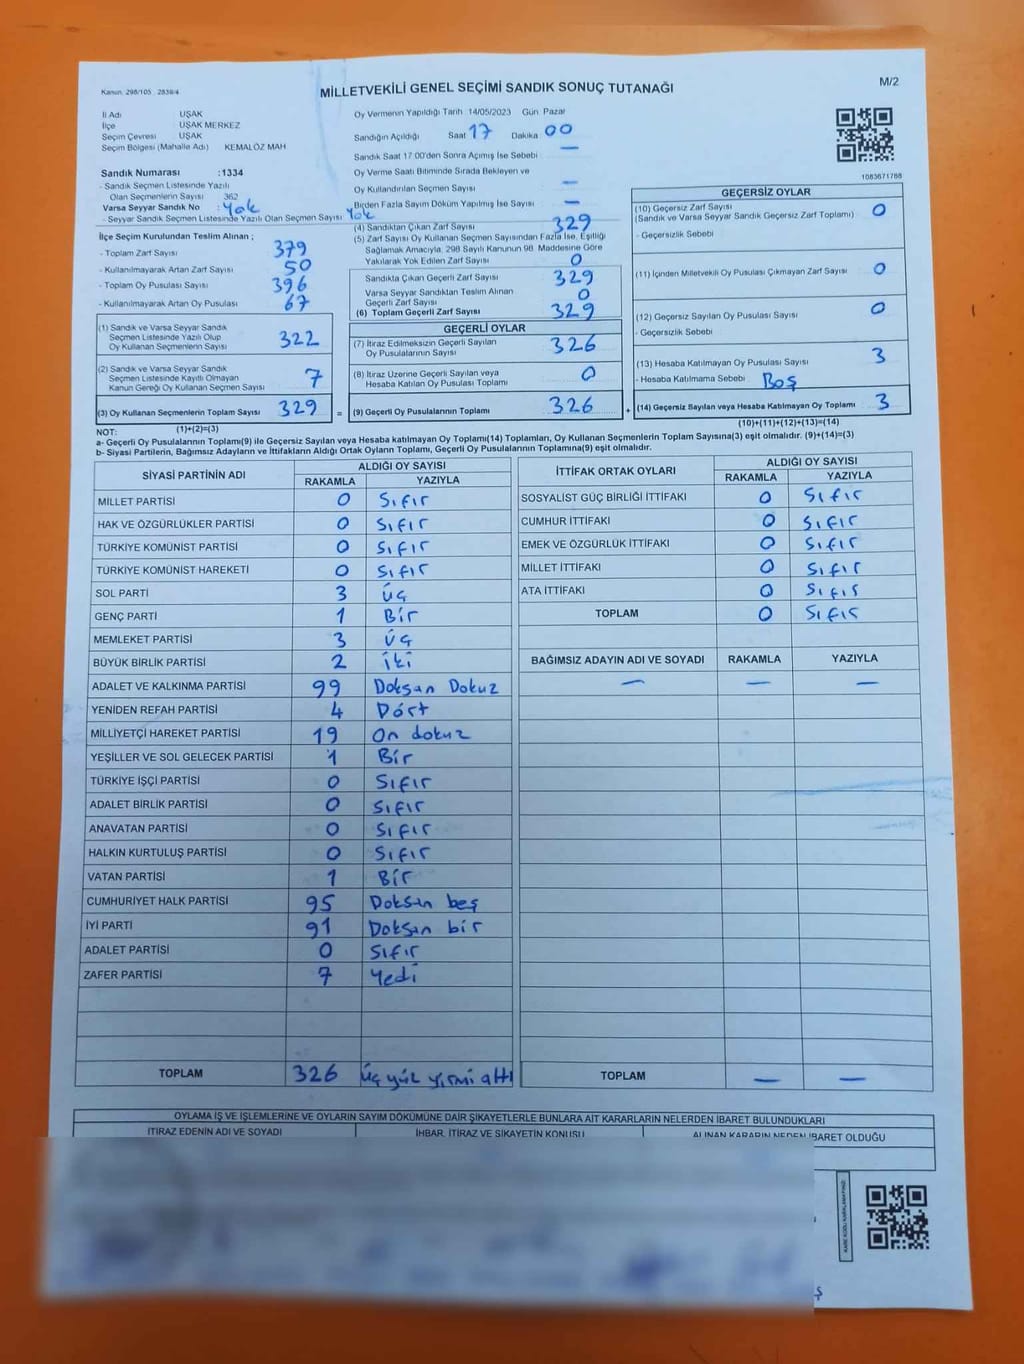 Kanun: 298/105 , 2839/4
MİLLETVEKİLİ GENEL SEÇİMİ SANDIK SONUÇ TUTANAĞI
M/2
İl Adı UŞAK
İlçe UŞAK MERKEZ
Seçim Çevresi UŞAK
Seçim Bölgesi (Mahalle Adı) KEMALÖZ MAH
Sandık Numarası :1334
- Sandık Seçmen Listesinde Yazılı
Olan Seçmenlerin Sayısı 362
Varsa Seyyar Sandık No : Yok
- Seyyar Sandık Seçmen Listesinde Yazılı Olan Seçmen Sayısı Yok
Oy Vermenin Yapıldığı Tarih 14/05/2023 Gün Pazar
Sandığın Açıldığı Saat 17 Dakika 00
Sandık Saat 17:00'den Sonra Açımış İse Sebebi —
Oy Verme Saati Bitiminde Sırada Bekleyen ve
Oy Kullandırılan Seçmen Sayısı —
Birden Fazla Sayım Döküm Yapılmış İse Sayısı —
1083671788
İlçe Seçim Kurulundan Teslim Alınan ;
- Toplam Zarf Sayısı 379
- Kullanılmayarak Artan Zarf Sayısı 50
- Toplam Oy Pusulası Sayısı 396
- Kullanılmayarak Artan Oy Pusulası 67
(1) Sandık ve Varsa Seyyar Sandık
Seçmen Listesinde Yazılı Olup
Oy Kullanan Seçmenlerin Sayısı 322
(2) Sandık ve Varsa Seyyar Sandık
Seçmen Listesinde Kayıtlı Olmayan
Kanun Gereği Oy Kullanan Seçmen Sayısı 7
(3) Oy Kullanan Seçmenlerin Toplam Sayısı 329 =
(1)+(2)=(3)
(4) Sandıktan Çıkan Zarf Sayısı 329
(5) Zarf Sayısı Oy Kullanan Seçmen Sayısından Fazla İse, Eşitliği
Sağlamak Amacıyla, 298 Sayılı Kanunun 98. Maddesine Göre
Yakılarak Yok Edilen Zarf Sayısı 0
Sandıkta Çıkan Geçerli Zarf Sayısı 329
Varsa Seyyar Sandıktan Teslim Alınan
Geçerli Zarf Sayısı 0
(6) Toplam Geçerli Zarf Sayısı 329
GEÇERLİ OYLAR
(7) İtiraz Edilmeksizin Geçerli Sayılan
Oy Pusulalarının Sayısı 326
(8) İtiraz Üzerine Geçerli Sayılan veya
Hesaba Katılan Oy Pusulası Toplamı 0
(9) Geçerli Oy Pusulalarının Toplamı 326 +
GEÇERSİZ OYLAR
(10) Geçersiz Zarf Sayısı 0
(Sandık ve Varsa Seyyar Sandık Geçersiz Zarf Toplamı)
- Geçersizlik Sebebi
(11) İçinden Milletvekili Oy Pusulası Çıkmayan Zarf Sayısı 0
(12) Geçersiz Sayılan Oy Pusulası Sayısı 0
- Geçersizlik Sebebi
(13) Hesaba Katılmayan Oy Pusulası Sayısı 3
- Hesaba Katılmama Sebebi Boş
(14) Geçersiz Sayılan veya Hesaba Katılmayan Oy Toplamı 3
(10)+(11)+(12)+(13)=(14)
NOT:
a- Geçerli Oy Pusulalarının Toplamı(9) ile Geçersiz Sayılan veya Hesaba katılmayan Oy Toplamı(14) Toplamları, Oy Kullanan Seçmenlerin Toplam Sayısına(3) eşit olmalıdır. (9)+(14)=(3)
b- Siyasi Partilerin, Bağımsız Adayların ve İttifakların Aldığı Ortak Oyların Toplamı, Geçerli Oy Pusulalarının Toplamına(9) eşit olmalıdır.
SİYASİ PARTİNİN ADI ALDIĞI OY SAYISI
RAKAMLA YAZIYLA
MİLLET PARTİSİ 0 Sıfır
HAK VE ÖZGÜRLÜKLER PARTİSİ 0 Sıfır
TÜRKİYE KOMÜNİST PARTİSİ 0 Sıfır
TÜRKİYE KOMÜNİST HAREKETİ 0 Sıfır
SOL PARTİ 3 Üç
GENÇ PARTİ 1 Bir
MEMLEKET PARTİSİ 3 Üç
BÜYÜK BİRLİK PARTİSİ 2 İki
ADALET VE KALKINMA PARTİSİ 99 Doksan Dokuz
YENİDEN REFAH PARTİSİ 4 Dört
MİLLİYETÇİ HAREKET PARTİSİ 19 On dokuz
YEŞİLLER VE SOL GELECEK PARTİSİ 1 Bir
TÜRKİYE İŞÇİ PARTİSİ 0 Sıfır
ADALET BİRLİK PARTİSİ 0 Sıfır
ANAVATAN PARTİSİ 0 Sıfır
HALKIN KURTULUŞ PARTİSİ 0 Sıfır
VATAN PARTİSİ 1 Bir
CUMHURİYET HALK PARTİSİ 95 Doksan beş
İYİ PARTİ 91 Doksan bir
ADALET PARTİSİ 0 Sıfır
ZAFER PARTİSİ 7 Yedi
TOPLAM 326 üç yüz yirmi altı
İTTİFAK ORTAK OYLARI ALDIĞI OY SAYISI
RAKAMLA YAZIYLA
SOSYALİST GÜÇ BİRLİĞİ İTTİFAKI 0 Sıfır
CUMHUR İTTİFAKI 0 Sıfır
EMEK VE ÖZGÜRLÜK İTTİFAKI 0 Sıfır
MİLLET İTTİFAKI 0 Sıfır
ATA İTTİFAKI 0 Sıfır
TOPLAM 0 Sıfır
BAĞIMSIZ ADAYIN ADI VE SOYADI RAKAMLA YAZIYLA
— — —
TOPLAM — —
OYLAMA İŞ VE İŞLEMLERİNE VE OYLARIN SAYIM DÖKÜMÜNE DAİR ŞİKAYETLERLE BUNLARA AİT KARARLARIN NELERDEN İBARET BULUNDUKLARI
İTİRAZ EDENİN ADI VE SOYADI İHBAR, İTİRAZ VE ŞİKAYETİN KONUSU ALINAN KARARIN NEDEN İBARET OLDUĞU